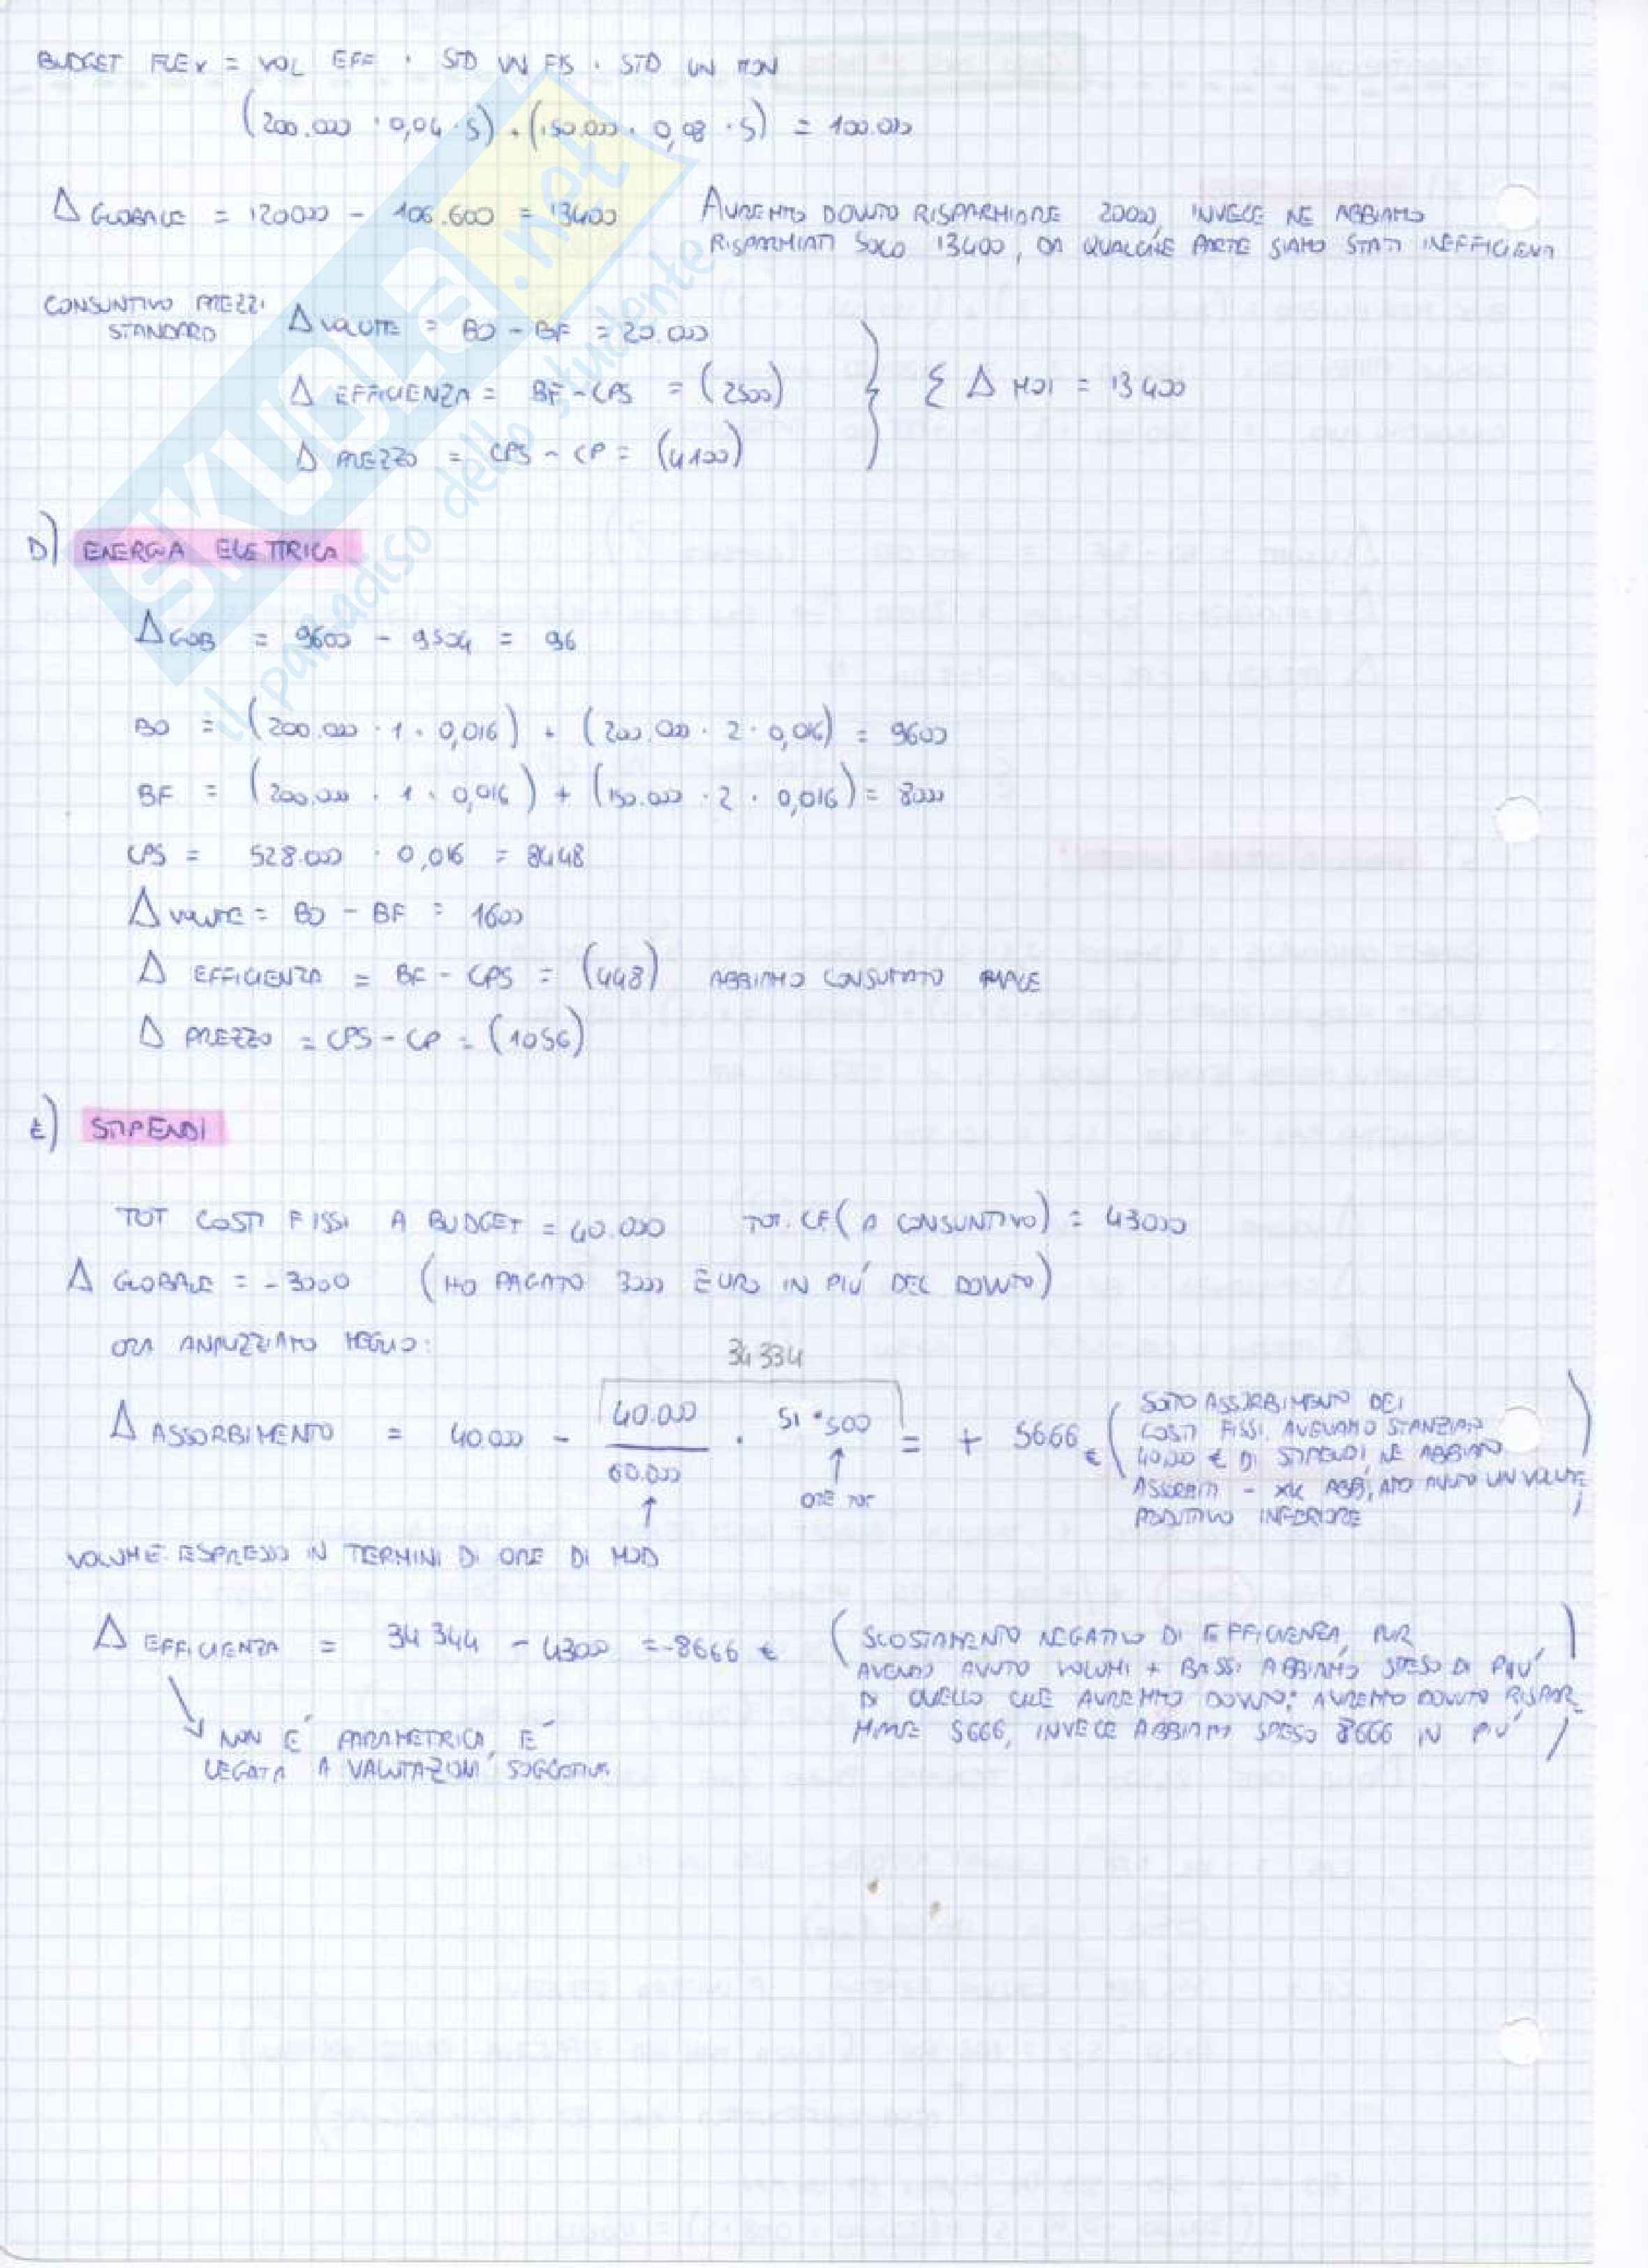 BUDGET FLEX = VOL EFF · STD UN FIS · STD UN MON
(200.000 · 0,04 · 5) + (150.000 · 0,08 · 5) = 100.000
Δ GLOBALE = 120000 - 106.600 = 13400 AVREMMO DOVUTO RISPARMIARE 20000, INVECE NE ABBIAMO
RISPARMIATI SOLO 13400, DA QUALCHE PARTE SIAMO STATI INEFFICIENTI
CONSUNTIVO PREZZI
STANDARD
Δ VOLUME = BO - BF = 20.000
Δ EFFICIENZA = BF - CPS = (2500)
Δ PREZZO = CPS - CP = (4100)
Σ Δ MOD = 13400
D) ENERGIA ELETTRICA
Δ GLOB = 9600 - 9504 = 96
BO = (200.000 · 1 · 0,016) + (200.000 · 2 · 0,016) = 9600
BF = (200.000 · 1 · 0,016) + (150.000 · 2 · 0,016) = 8000
CPS = 528.000 · 0,016 = 8448
Δ VOLUME = BO - BF = 1600
Δ EFFICIENZA = BF - CPS = (448) ABBIAMO CONSUMATO MALE
Δ PREZZO = CPS - CP = (1056)
E) STIPENDI
TOT COSTI FISSI A BUDGET = 40.000 TOT. CF (A CONSUNTIVO) = 43000
Δ GLOBALE = -3000 (HO PAGATO 3000 EURO IN PIU' DEL DOVUTO)
ORA ANALIZZIAMO MEGLIO:
34334
Δ ASSORBIMENTO = 40.000 - 40.000 / 60.000 · 51·500 = + 5666 €
ORE TOT
(SOTTO ASSORBIMENTO DEI
COSTI FISSI. AVEVAMO STANZIATI
40.000 € DI STIPENDI, NE ABBIAMO
ASSORBITI - XK ABBIAMO AVUTO UN VOLUME
PRODUTTIVO INFERIORE)
VOLUME ESPRESSO IN TERMINI DI ORE DI MOD
Δ EFFICIENZA = 34344 - 43000 = -8666 €
(SCOSTAMENTO NEGATIVO DI EFFICIENZA, PUR
AVENDO AVUTO VOLUMI + BASSI ABBIAMO SPESO DI PIU'
DI QUELLO CHE AVREMMO DOVUTO: AVREMMO DOVUTO RISPAR-
MIARE 5666, INVECE ABBIAMO SPESO 8666 IN PIU')
NON E' PARAMETRICA, E'
LEGATA A VALUTAZIONI SOGGETTIVE
SKUOLA.net
il paradiso dello studente